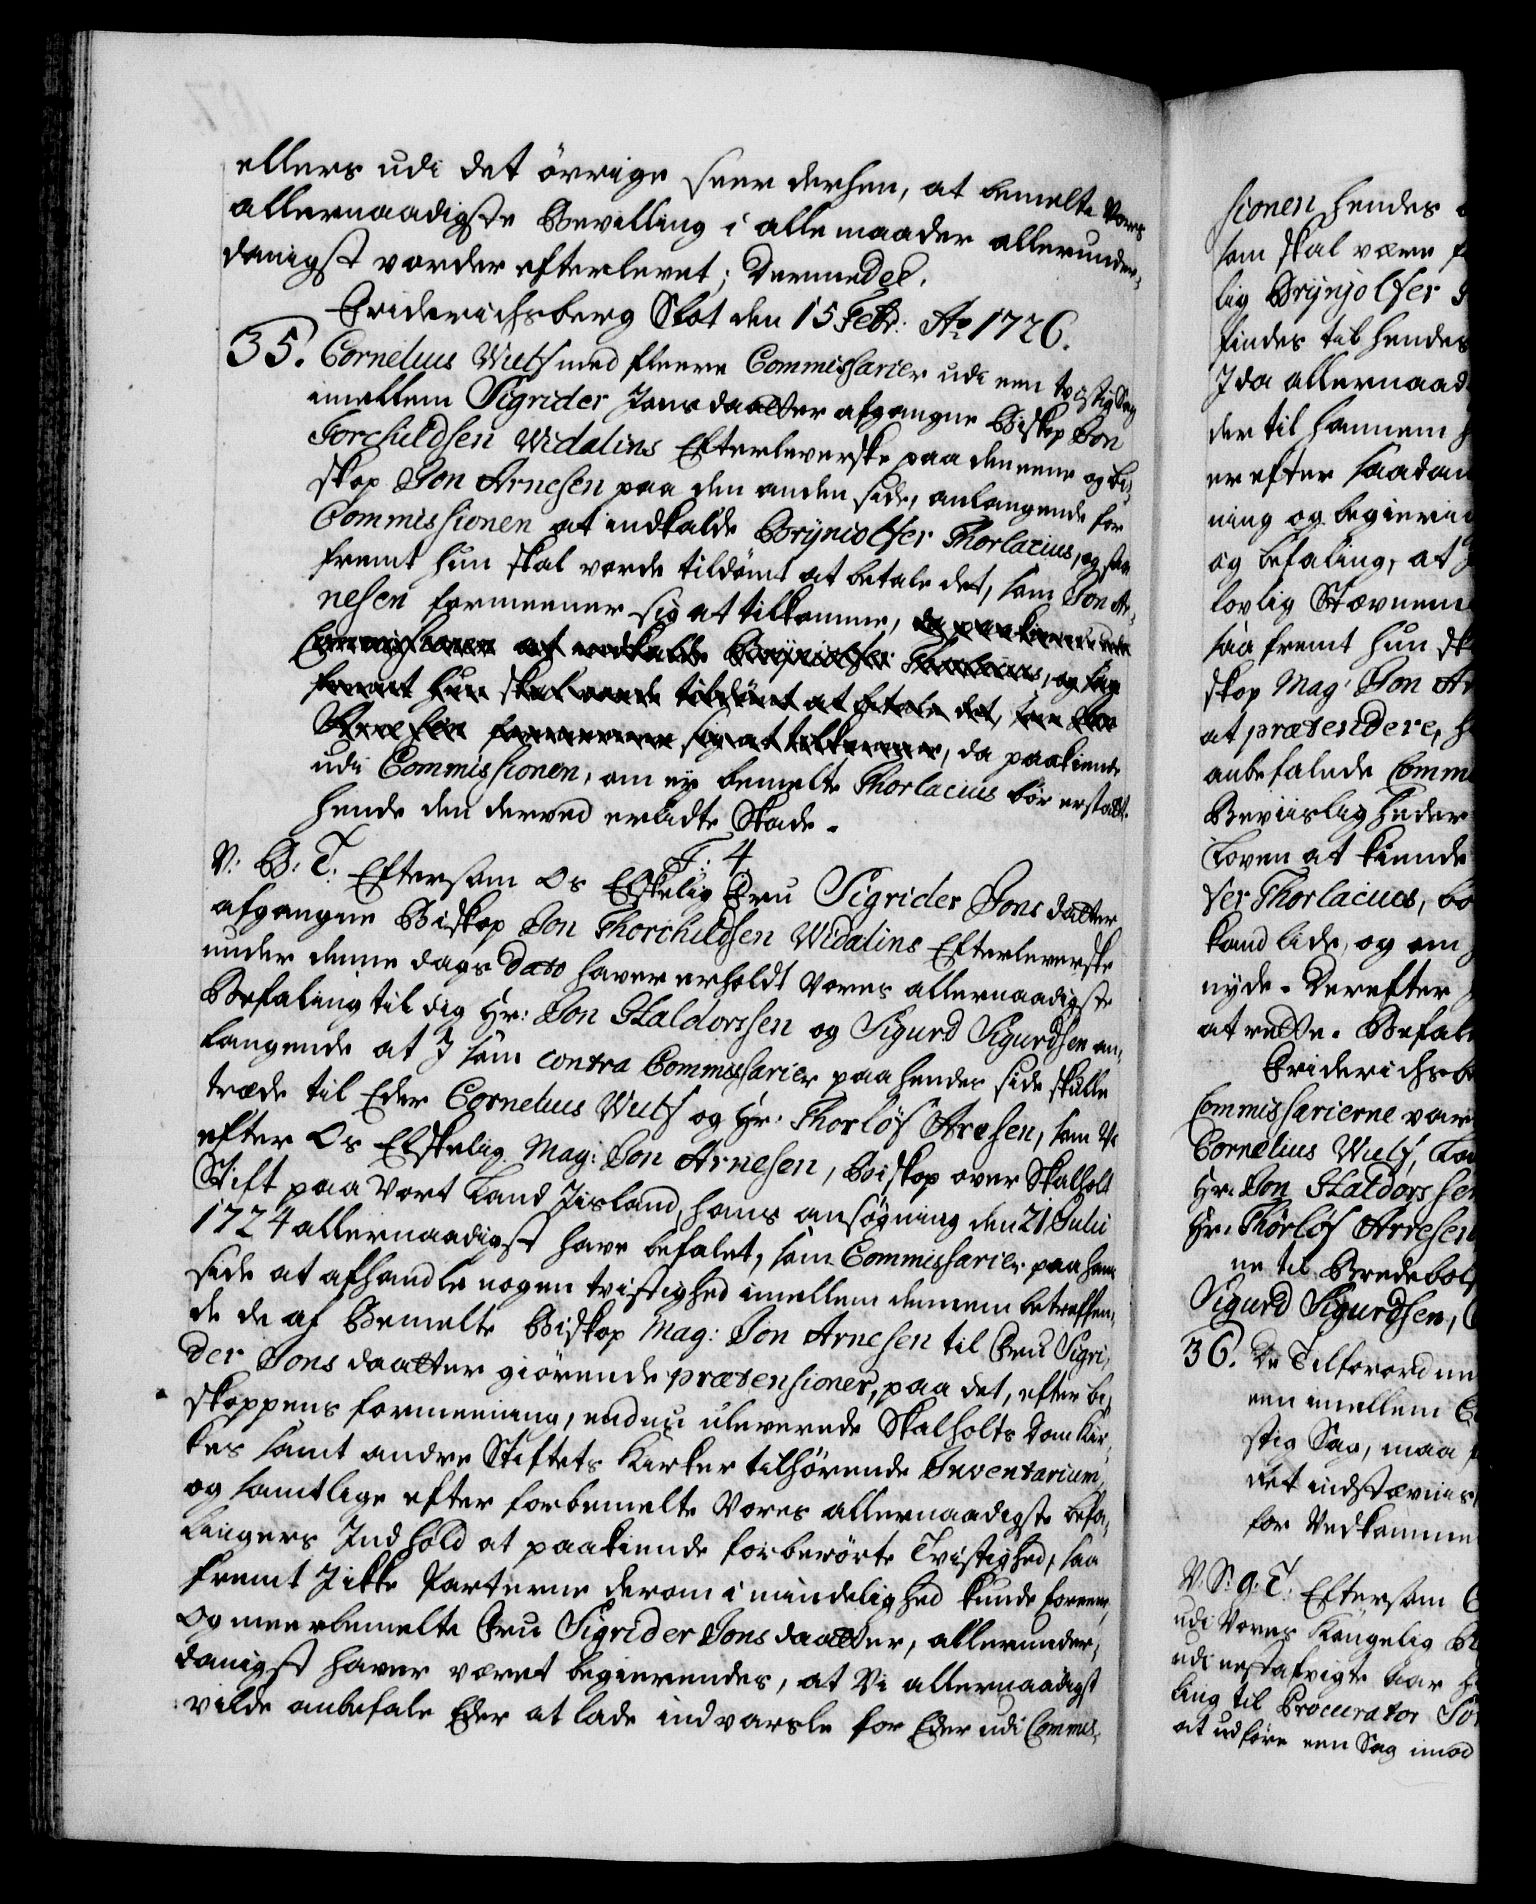 ellers udi det övrige seer derhen, at bemelte Vores
allernaadigste Bevilling i alle maader allerunder,
danigst vorder efterlevet; Dermed etc.
Friderichsberg Slot den 15 Febr: Ao 1726.
35. Cornelius Wulf med fleere Commissarier udi een tvistig Sag
imellem Sigrider Jons daatter afgangne Biskop Jon
Torchildsen Widalins Efterleverske paa den eene og Bi,
skop Jon Arnesen paa den anden side, anlangende for
Commissionen at indkalde Brÿniolfer Thorlacius, og saa
fremt hun skal vorde tildömt at betale det, som Jon Ar,
nesen formeener sig at tilkomme, da paakiende udi
Commissionen at indkalde Brÿniolfer Thorlacius, og saa
fremt hun skal vorde tildömt at betale det, som Jon
Arnesen formeener sig at tilkomme, da paakiende
udi Commissionen, om eÿ bemelte Thorlacius bör erstatte
hende den derved erlidte Skade.
F: 4
V: B: T: Eftersom Os Elskelig Fru Sigrider Jons datter
afgangne Biskop Jon Thorchildsen Widalins Efterleverske
under denne dags Dato haver erholdt Vores allernaadigste
Befaling til dig Hr: Jon Haldorssen og Sigurd Sigurdsen an,
langende at I som contra Commissarier paa hendes side skulle
træde til Eder Cornelius Wulf og Hr: Thorlöf Aresen, som Vi
efter Os Elskelig Mag: Jon Arnesen, Biskop over Skalholt
Stift paa Vort Land Iisland, hans ansögning den 21 Julii
1724 allernaadigst have befalet, som Commissarier paa hans
side at afhandle nogen tvistighed imellem dennem betreffen,
de de af Bemelte Biskop Mag: Jon Arnesen til Fru Sigri,
der Jons daatter giörende prætensioner, paa det, efter bi,
skoppens formeening, endnu uleverede Skalholts Dom Kir,
kes samt andre Stiftets Kirker tilhörende Inventarium,
og samtlige efter forbemelte Vores allernaadigste befa,
lingers Indhold at paakiende forberörte Tvistighed, saa
fremt I ikke Parterne derom i mindelighed kunde foreene,
Og meerbemelte Fru Sigrider Jons daatter, allerunder,
danigst haver været begierendes, at Vi allernaadigst
vilde anbefale Eder at lade indvarsle for Eder udi Commis,
sionen hendes
som skal være
lig Brÿnjolfer
findes til hendes
I da allernaad
der til hannem
er efter saadan
ning og begierin
og befaling, at
lovlig Stævnem
saa fremt hun sk
skop Mag: Jon Ar
at prætendere, h
anbefalede Comm
Beviislig heder
Loven at kiende
fer Thorlacius, bö
kand lide, og om
nyde. Derefter
at rette. Befal
Friderichsbe
Commissarierne var
Cornelius Wulf, La
Hr: Jon Haldorssen
Hr: Thorlöf Arresen
ne til Bredebols
Sigurd Sigurdsen,
36. De Tilforordne
een imellem
stig Sag, maa
det indstævnis
for Vedkomme
V: S: G: T: Eftersom
udi Vores Kongelig
udi nestafvigte Aar
ling til Procurator
at udföre een Sag imod